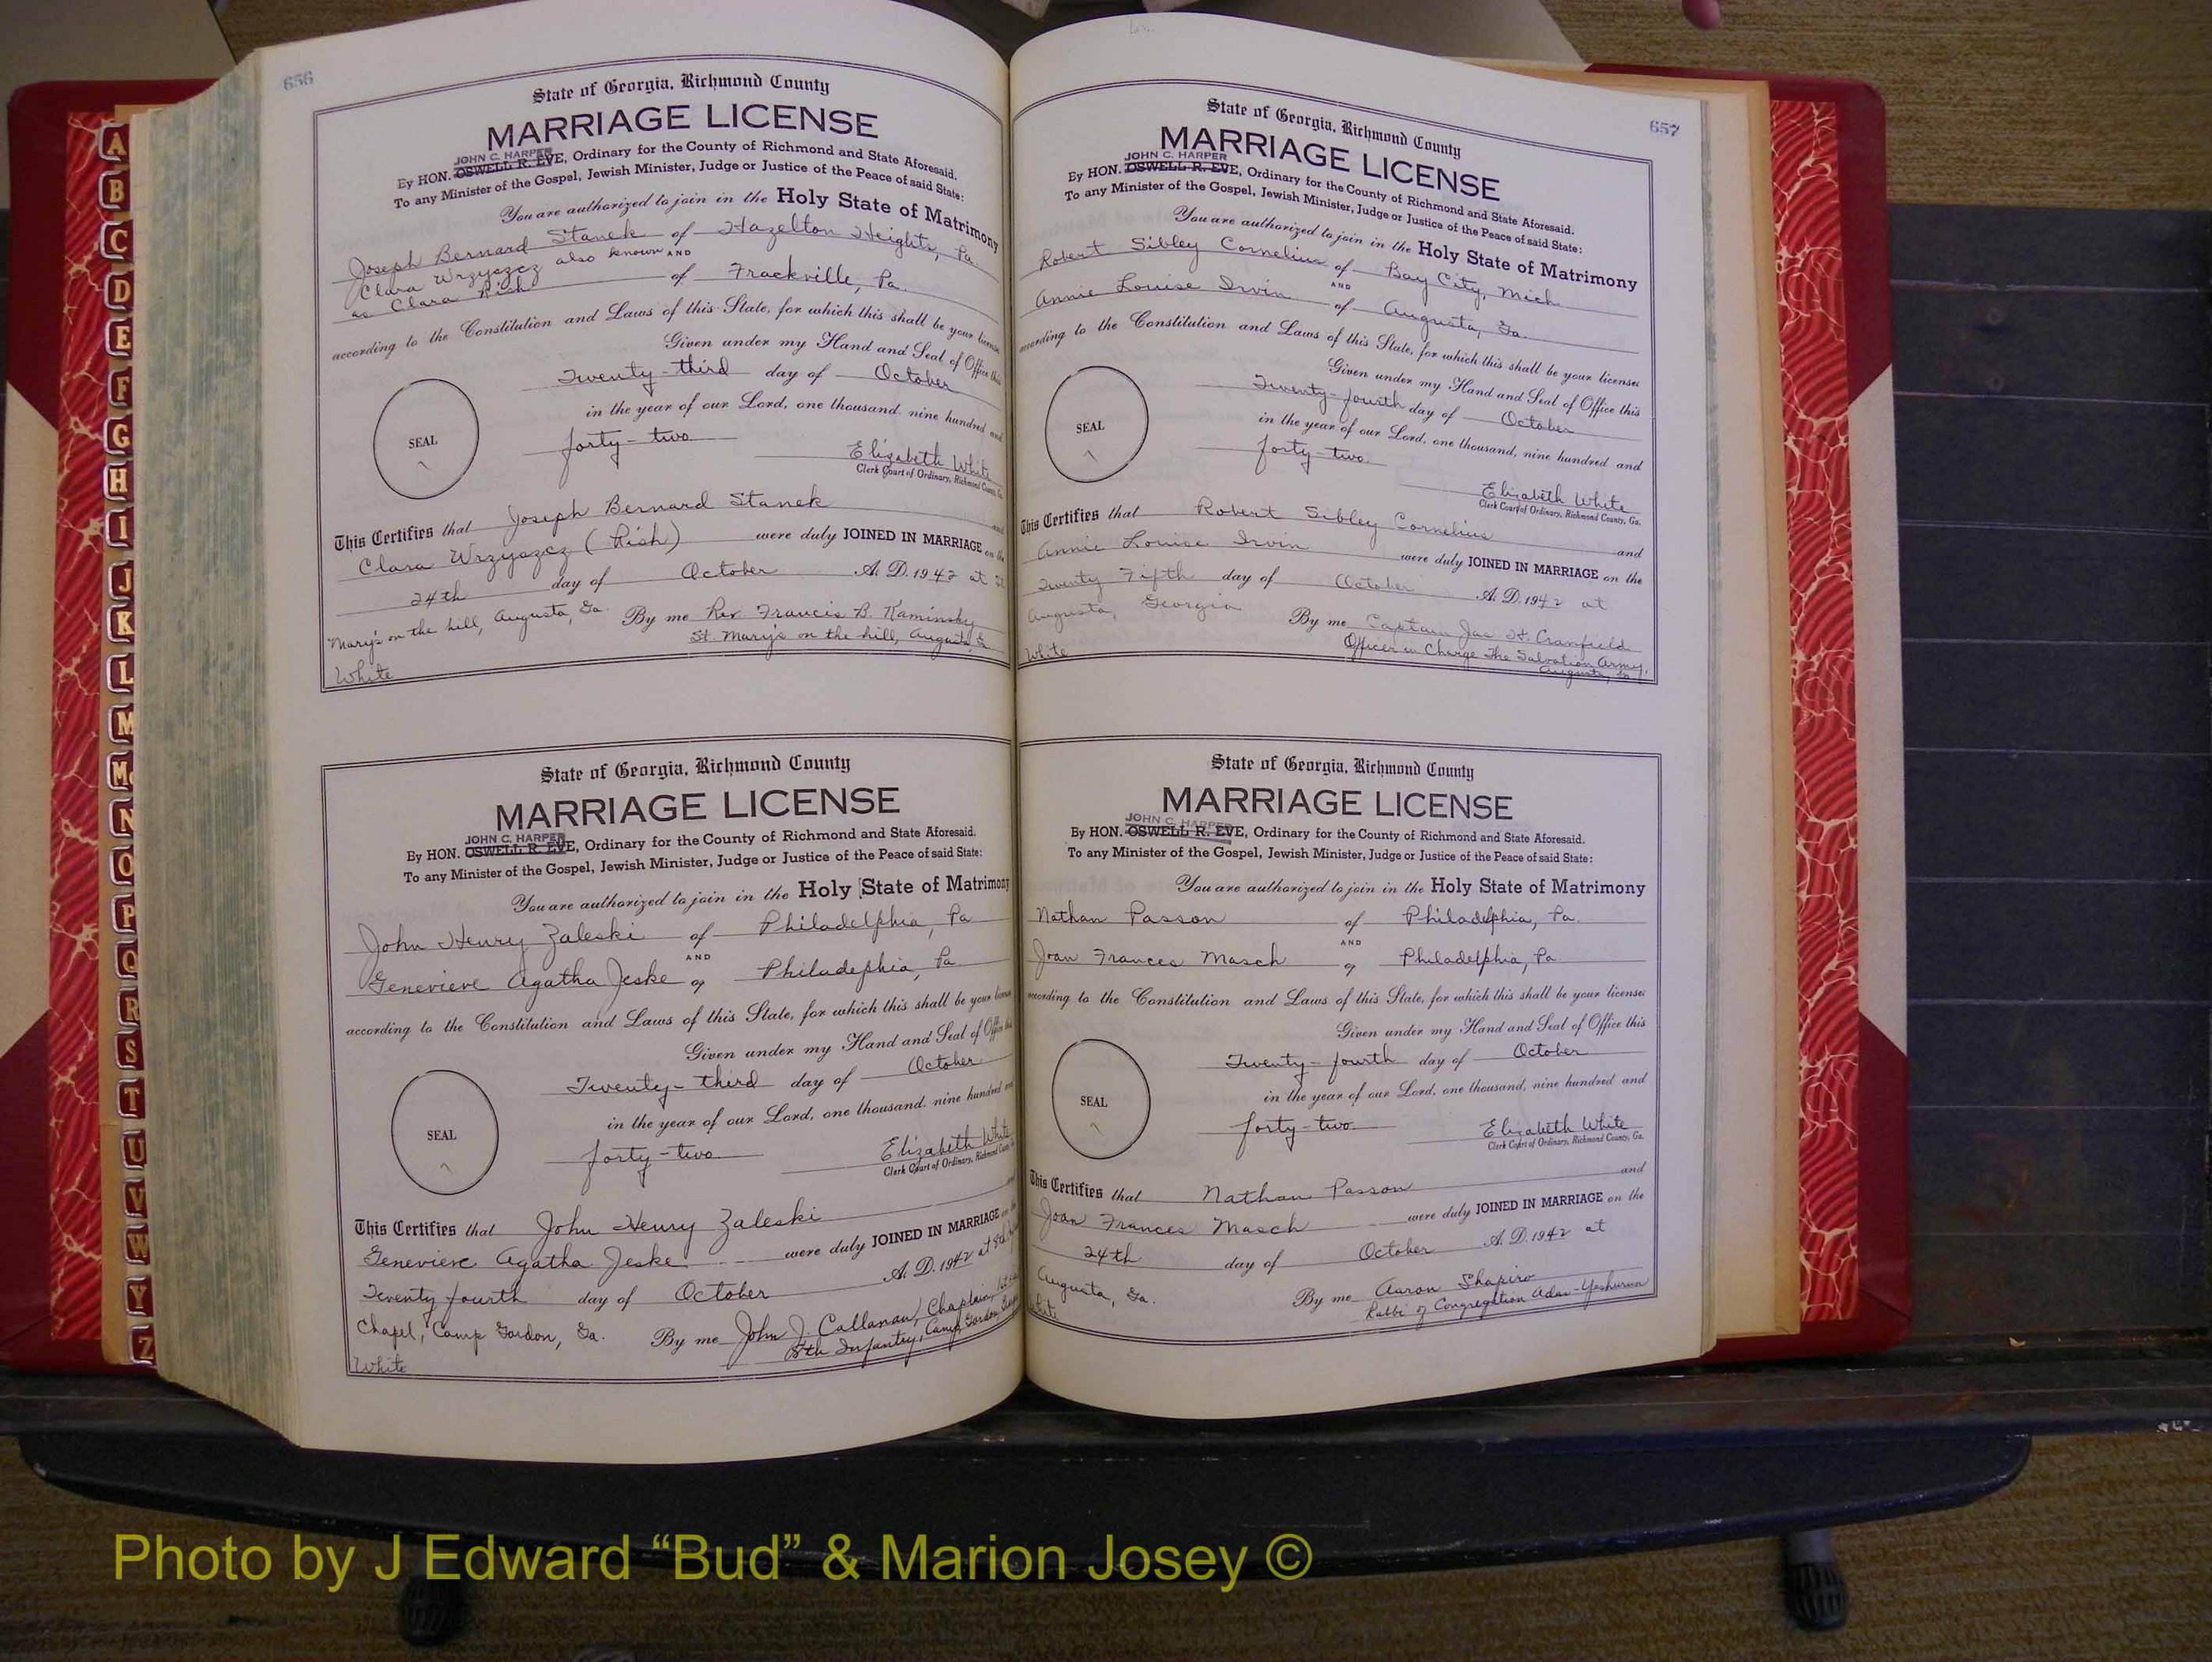 656
State of Georgia, Richmond County
MARRIAGE LICENSE
JOHN C. HARPER
By HON. OSWELL R. EVE, Ordinary for the County of Richmond and State Aforesaid.
To any Minister of the Gospel, Jewish Minister, Judge or Justice of the Peace of said State:
You are authorized to join in the Holy State of Matrimony
Joseph Bernard Stanek of Hazelton Heights, Pa.
AND
Clara Wrzyszcz also known
as Clara Rish of Frackville, Pa.
according to the Constitution and Laws of this State, for which this shall be your license
Given under my Hand and Seal of Office this
Twenty-third day of October
in the year of our Lord, one thousand, nine hundred and
forty-two
SEAL
Elizabeth White
Clerk Court of Ordinary, Richmond County, Ga.
This Certifies that Joseph Bernard Stanek and
Clara Wrzyszcz (Rish) were duly JOINED IN MARRIAGE on the
24th day of October A. D. 1942 at St.
Mary's on the hill, Augusta, Ga. By me Rev. Francis B. Kaminsky
St. Mary's on the hill, Augusta
White
State of Georgia, Richmond County
MARRIAGE LICENSE
JOHN C. HARPER
By HON. OSWELL R. EVE, Ordinary for the County of Richmond and State Aforesaid.
To any Minister of the Gospel, Jewish Minister, Judge or Justice of the Peace of said State:
You are authorized to join in the Holy State of Matrimony
John Henry Zaleski of Philadelphia, Pa
AND
Genevieve Agatha Jeske of Philadephia, Pa
according to the Constitution and Laws of this State, for which this shall be your license
Given under my Hand and Seal of Office this
Twenty-third day of October
in the year of our Lord, one thousand, nine hundred and
forty-two
SEAL
Elizabeth White
Clerk Court of Ordinary, Richmond County
This Certifies that John Henry Zaleski and
Genevieve Agatha Jeske were duly JOINED IN MARRIAGE on the
Twenty fourth day of October A. D. 1942 at
Chapel, Camp Gordon, Ga. By me John J. Callanan, Chaplain,
8th Infantry, Camp Gordon,
White
657
State of Georgia, Richmond County
MARRIAGE LICENSE
JOHN C. HARPER
By HON. OSWELL R. EVE, Ordinary for the County of Richmond and State Aforesaid.
To any Minister of the Gospel, Jewish Minister, Judge or Justice of the Peace of said State:
You are authorized to join in the Holy State of Matrimony
Robert Sibley Cornelius of Bay City, Mich
AND
Annie Louise Irvin of Augusta, Ga.
according to the Constitution and Laws of this State, for which this shall be your license:
Given under my Hand and Seal of Office this
Twenty-fourth day of October
in the year of our Lord, one thousand, nine hundred and
forty-two
SEAL
Elizabeth White
Clerk Court of Ordinary, Richmond County, Ga.
This Certifies that Robert Sibley Cornelius and
Annie Louise Irvin were duly JOINED IN MARRIAGE on the
Twenty Fifth day of October A. D. 1942 at
Augusta, Georgia By me Captain Jas H. Cranfield
Officer in Charge The Salvation Army,
Augusta, Ga.
White
State of Georgia, Richmond County
MARRIAGE LICENSE
JOHN C. HARPER
By HON. OSWELL R. EVE, Ordinary for the County of Richmond and State Aforesaid.
To any Minister of the Gospel, Jewish Minister, Judge or Justice of the Peace of said State:
You are authorized to join in the Holy State of Matrimony
Nathan Passon of Philadelphia, Pa.
AND
Joan Frances Masch of Philadelphia, Pa
according to the Constitution and Laws of this State, for which this shall be your license:
Given under my Hand and Seal of Office this
Twenty-fourth day of October
in the year of our Lord, one thousand, nine hundred and
forty-two
SEAL
Elizabeth White
Clerk Court of Ordinary, Richmond County, Ga.
This Certifies that Nathan Passon and
Joan Frances Masch were duly JOINED IN MARRIAGE on the
24th day of October A. D. 1942 at
Augusta, Ga. By me Aaron Shapiro
Rabbi of Congregation Adas-Yeshurun
White
A
B
C
D
E
F
G
H
I
J
K
L
M
Mc
N
O
P
Q
R
S
T
U
V
W
Y
Z
Photo by J Edward “Bud” & Marion Josey ©